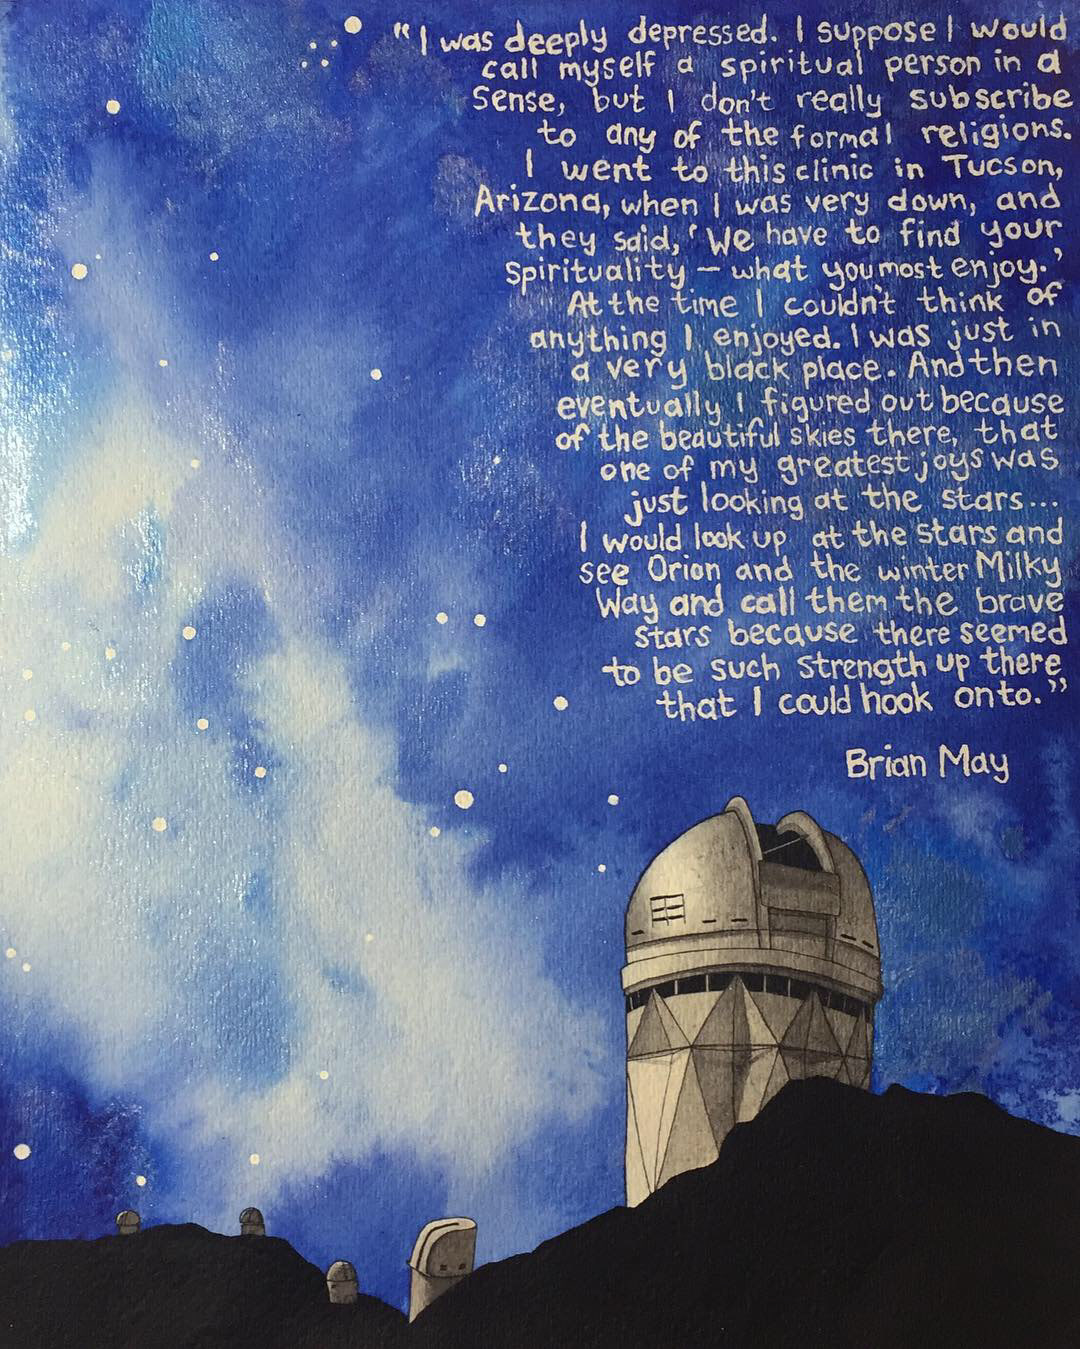 "I was deeply depressed. I suppose I would
call myself a spiritual person in a
sense, but I don't really subscribe
to any of the formal religions.
I went to this clinic in Tucson,
Arizona, when I was very down, and
they said, 'We have to find your
spirituality – what you most enjoy.'
At the time I couldn't think of
anything I enjoyed. I was just in
a very black place. And then
eventually I figured out because
of the beautiful skies there, that
one of my greatest joys was
just looking at the stars...
I would look up at the stars and
see Orion and the winter Milky
Way and call them the brave
stars because there seemed
to be such strength up there
that I could hook onto."
Brian May